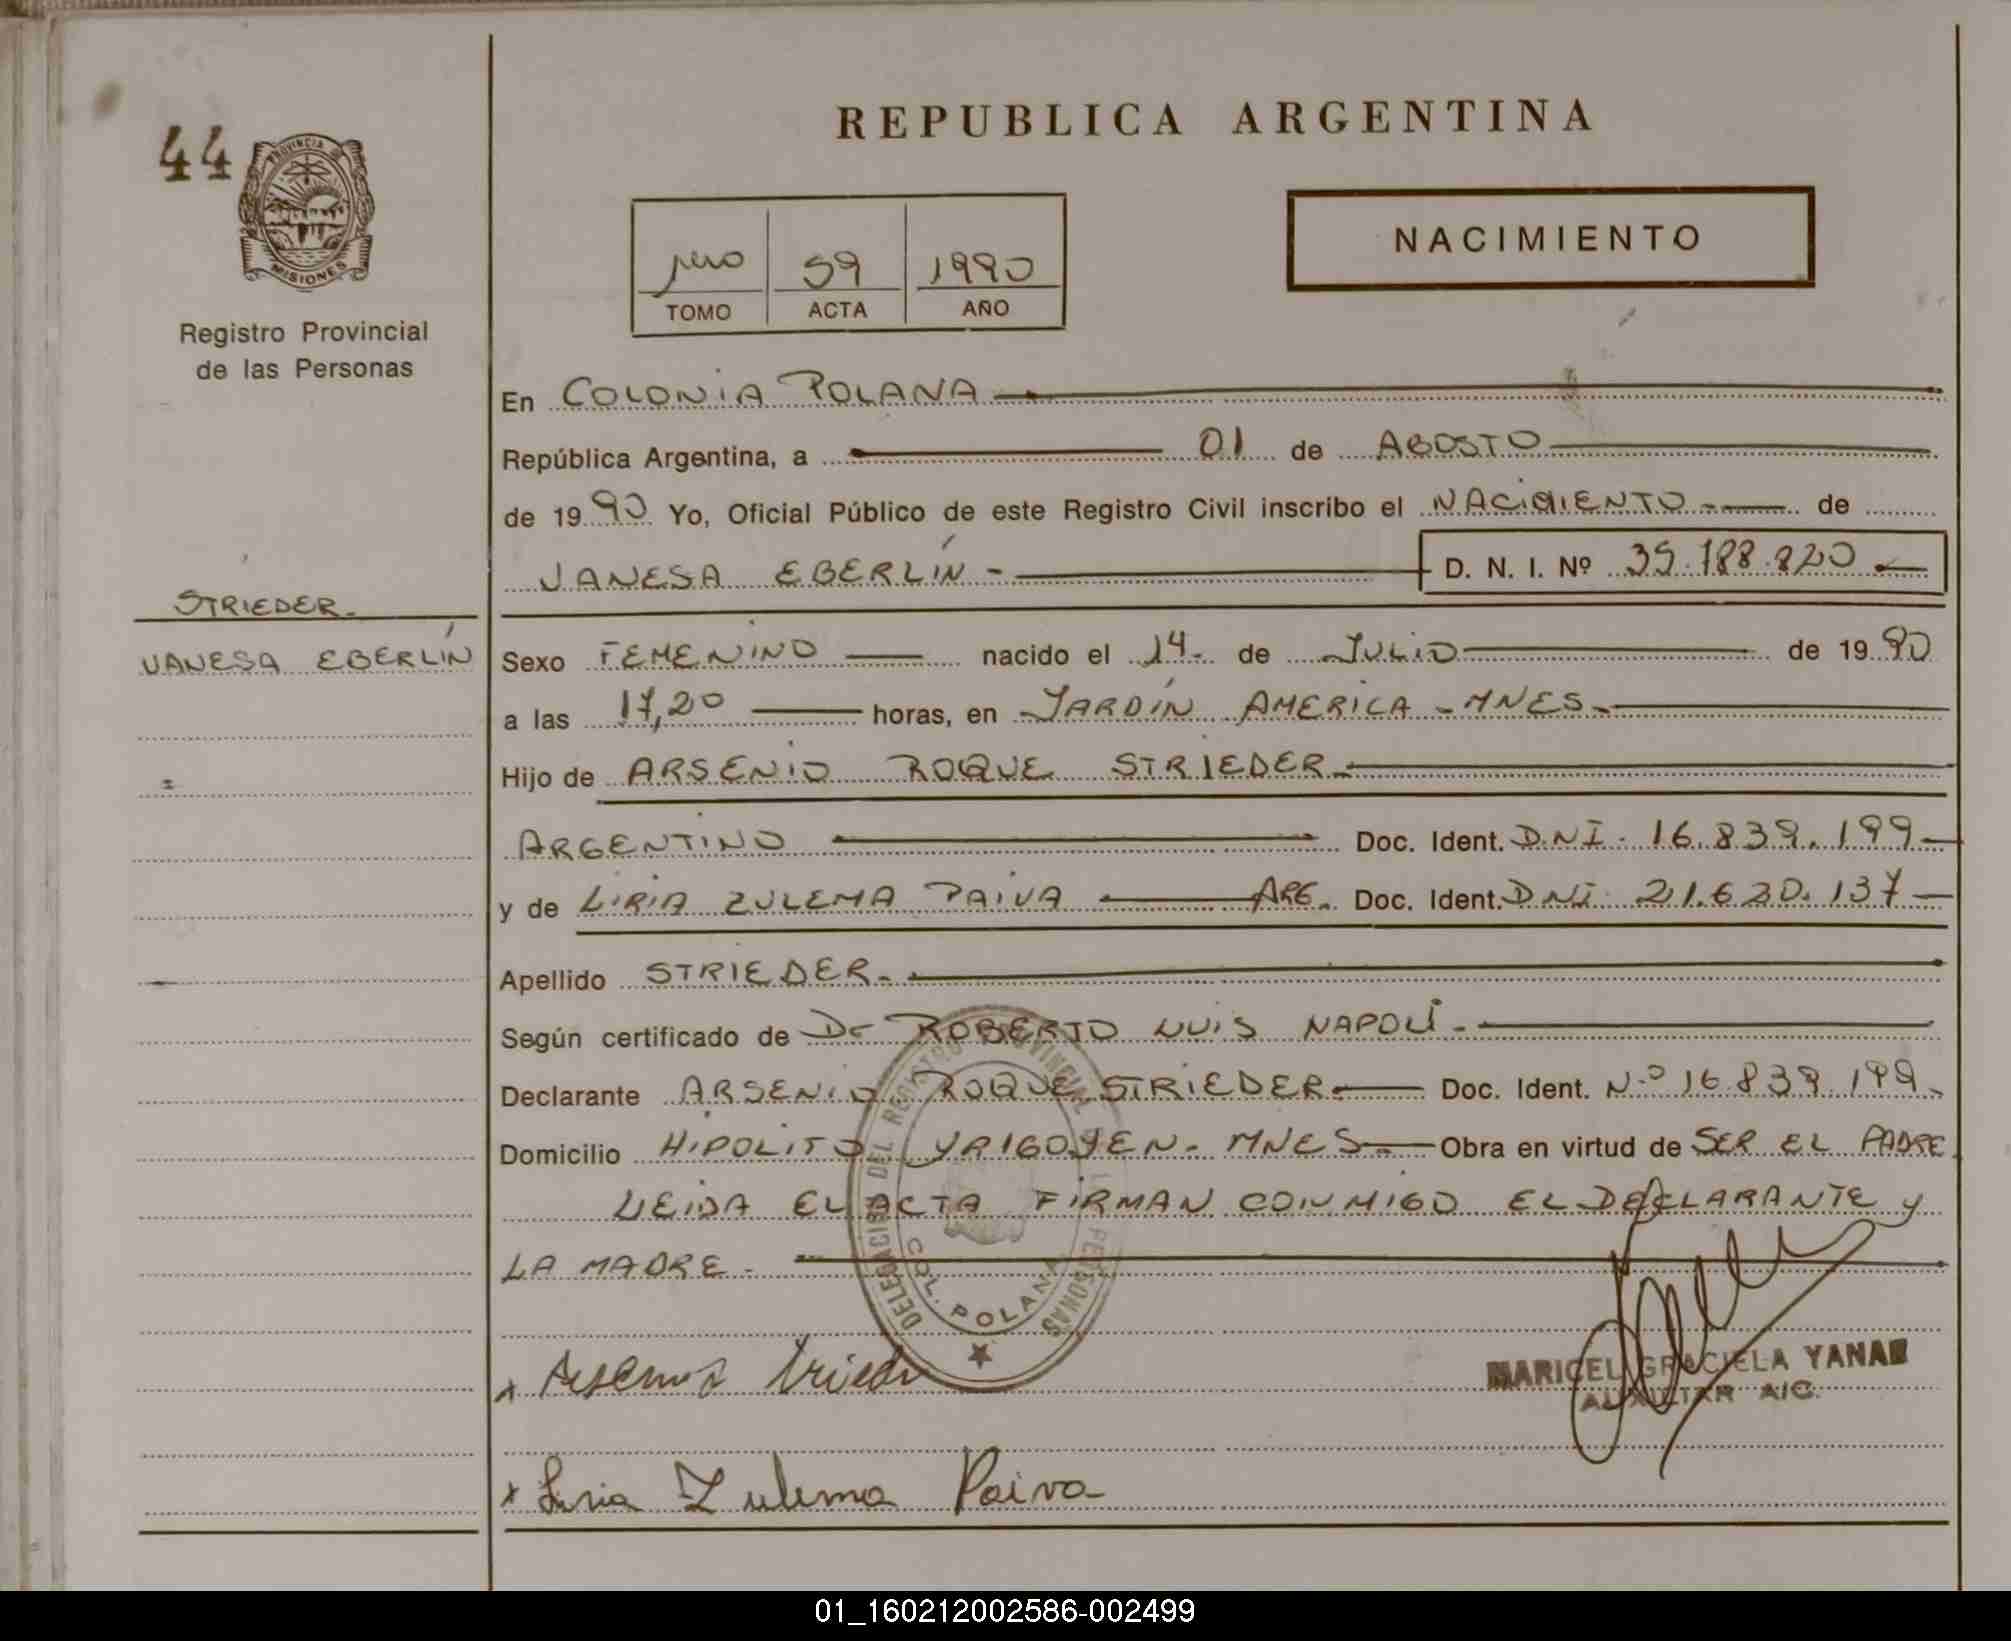 REPUBLICA ARGENTINA
44
PROVINCIA DE
MISIONES
Registro Provincial
de las Personas
NACIMIENTO
59 1990
TOMO ACTA AÑO
En COLONIA POLANA
República Argentina, a 01 de AGOSTO
de 1990 Yo, Oficial Público de este Registro Civil inscribo el NACIMIENTO de
VANESA EBERLÍN - D. N. I. Nº 35.188.820
STRIEDER-
VANESA EBERLÍN
Sexo FEMENINO nacido el 14 de JULIO de 1990
a las 17,20 horas, en JARDÍN AMERICA - MNES-
Hijo de ARSENIO ROQUE STRIEDER-
ARGENTINO Doc. Ident. DNI. 16.839.199
y de LIRIA ZULEMA PAIVA ARG. Doc. Ident. DNI 21.620.137
Apellido STRIEDER-
Según certificado de Dr ROBERTO LUIS NAPOLI-
Declarante ARSENIO ROQUE STRIEDER- Doc. Ident. N.º 16.839.199.
Domicilio HIPOLITO YRIGOYEN- MNES- Obra en virtud de SER EL PADRE.
LEIDA EL ACTA FIRMAN CONMIGO EL DECLARANTE y
LA MADRE-
DELEGACION DEL REGISTRO PROVINCIAL DE LAS PERSONAS
COL. POLANA
x Arsenio Strieder
MARICEL GRACIELA YANAE
AUXILIAR A/C.
x Liria Zulema Paiva
01_160212002586-002499